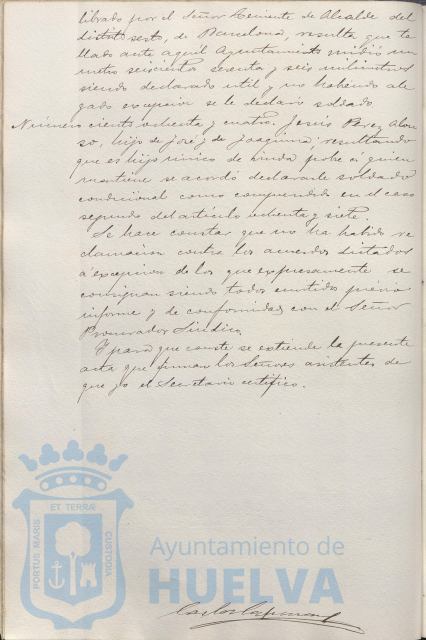 librado por el Señor Teniente de Alcalde del
distrito sesto, de Barcelona, resulta que ta
llado ante aquel Ayuntamiento midió un
metro seiscientos sesenta y seis milimetros
siendo declarado util y no habiendo ale
gado excepcion se le declaró soldado.
Número ciento ochenta y cuatro. Jesús Perez Alon
so, hijo de José y de Joaquina: resultando
que es hijo único de viuda pobre á quien
mantiene se acordó declararle soldado
condicional como comprendido en el caso
segundo del artículo ochenta y siete.
Se hace constar que no ha habido re
clamacion contra los acuerdos dictados
á excepcion de los que expresamente se
consignan siendo todos emitidos previo
informe y de conformidad con el Señor
Procurador Síndico.
Y para que conste se extiende la presente
acta que firman los Señores asistentes de
que yo el Secretario certifico.
PORTUS MARIS ET TERRÆ CUSTODIA
Ayuntamiento de
HUELVA
Carlos